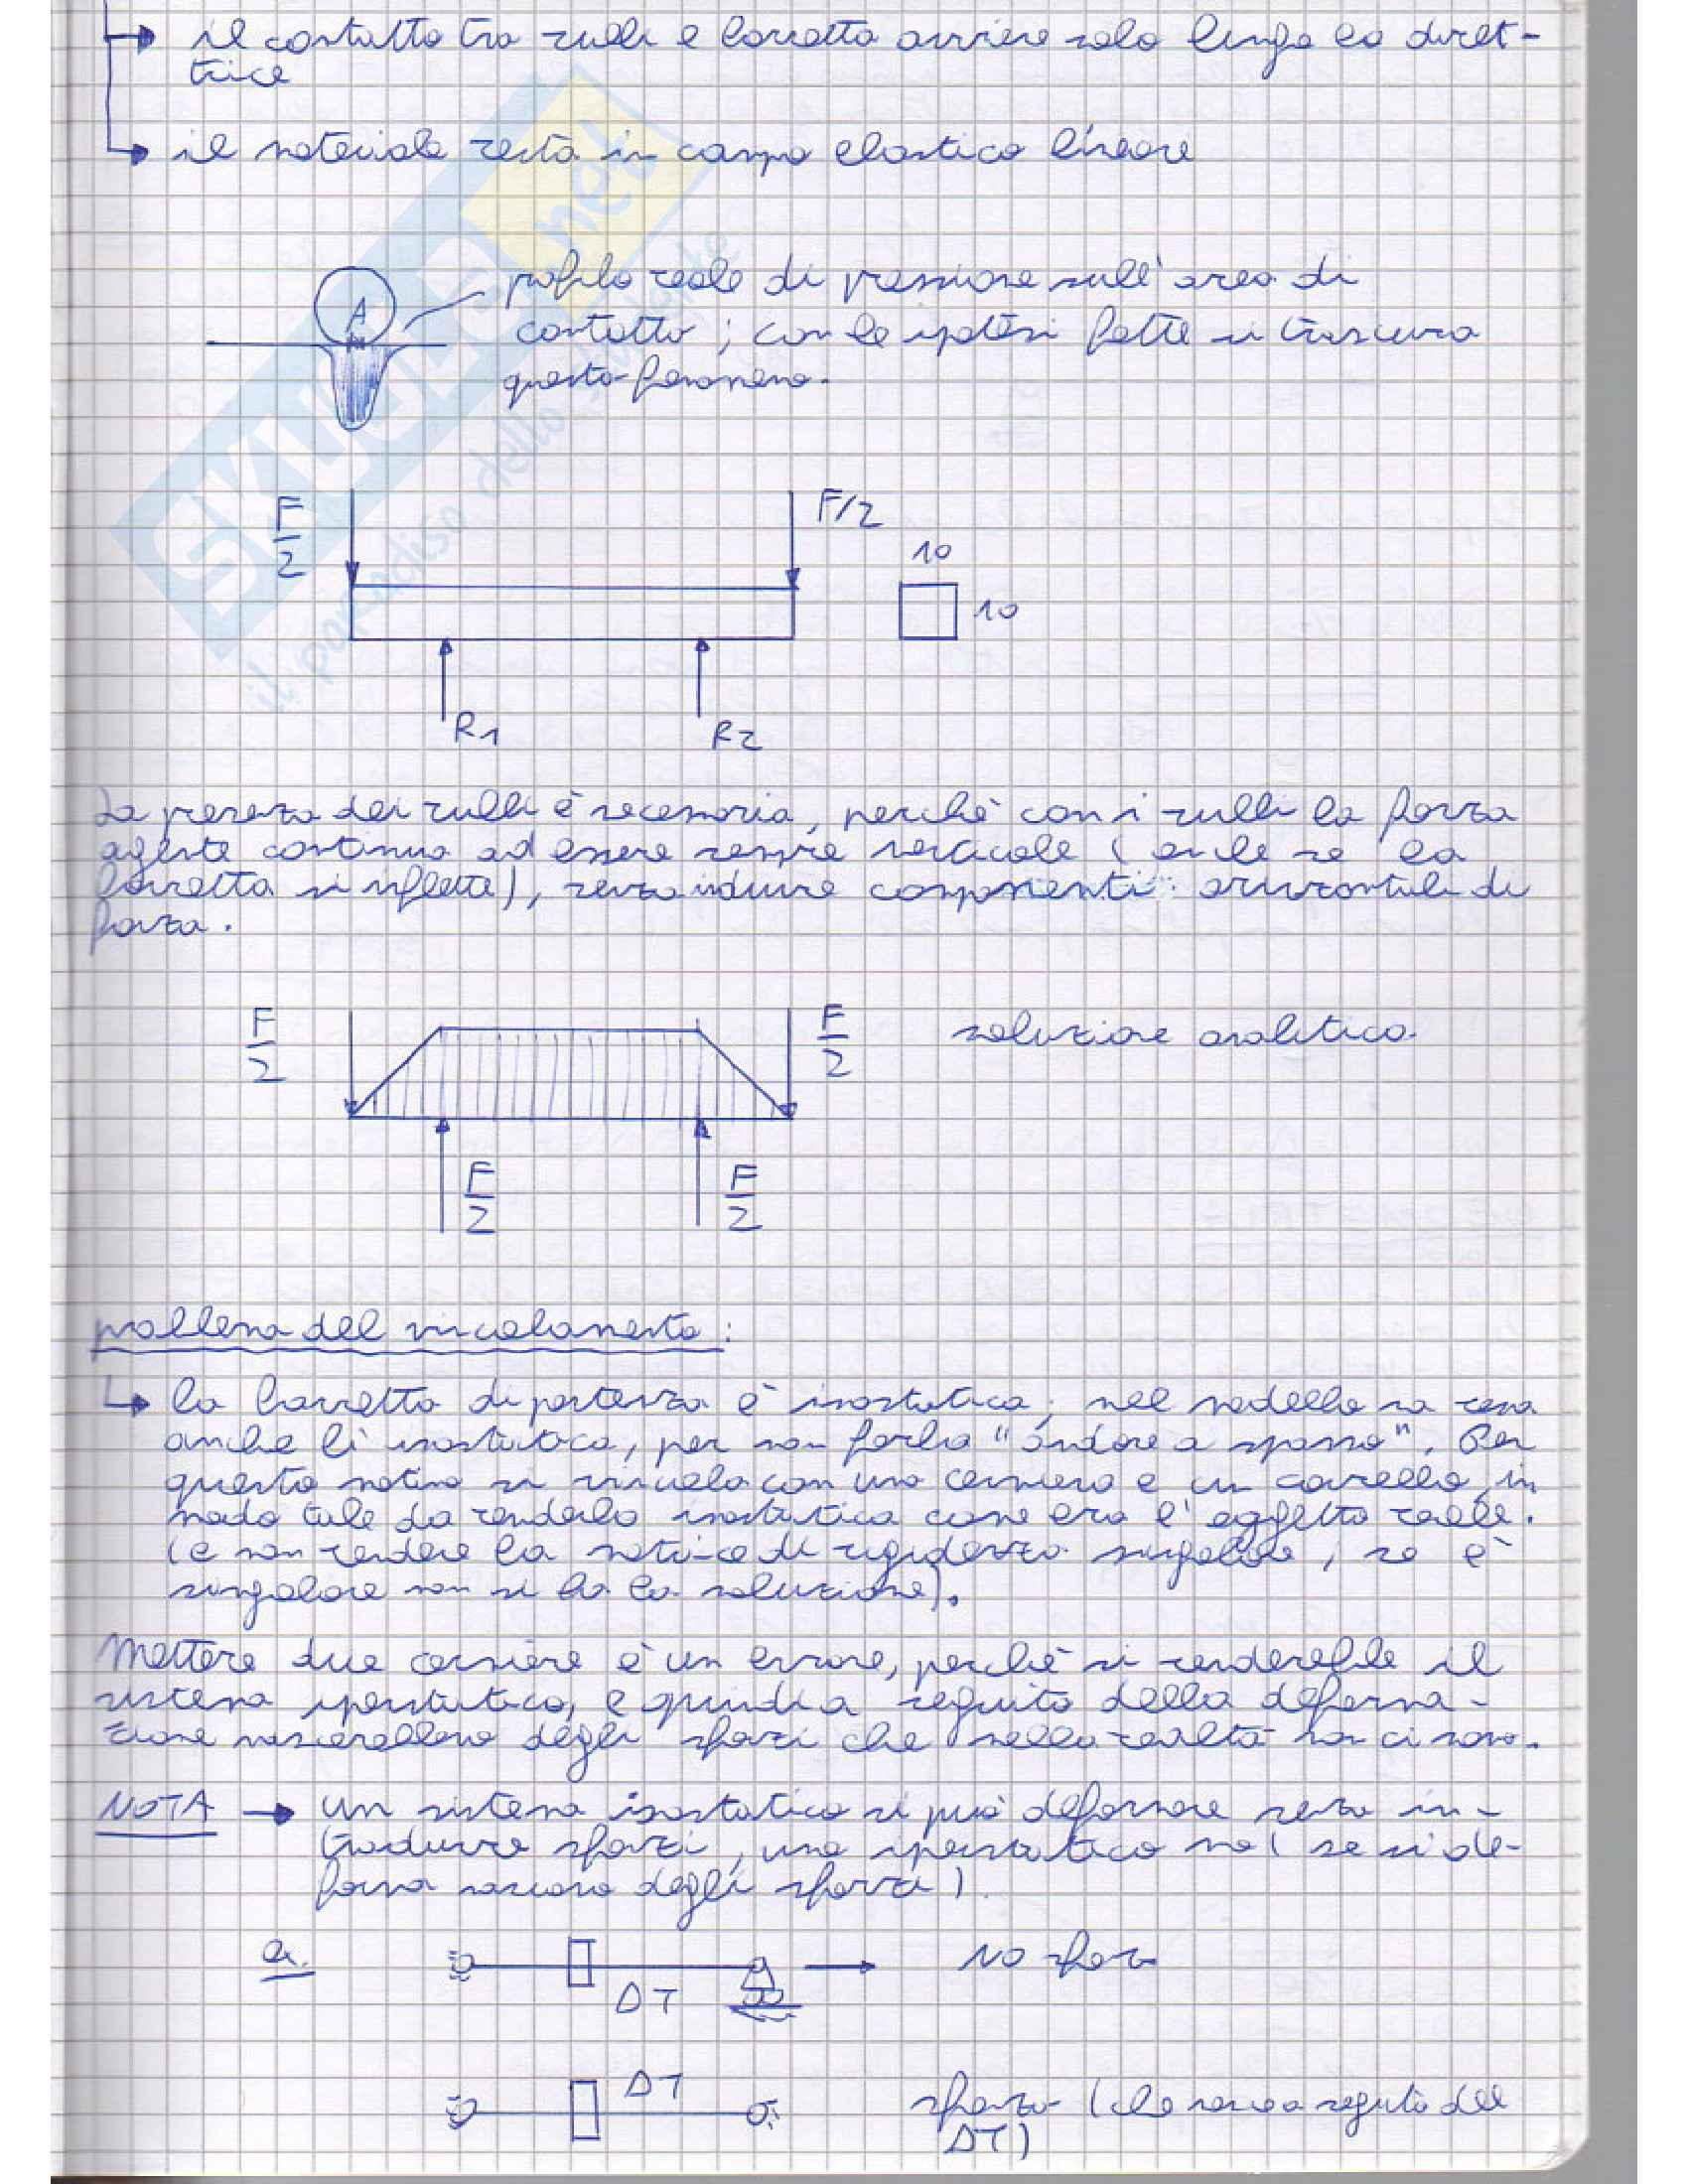 il contatto tra rulli e barretta avviene solo lungo la diret-
trice
il materiale resta in campo elastico lineare
A
profilo reale di pressione sull'area di
contatto ; con le ipotesi fatte si trascura
questo fenomeno.
F/2
F/2
10
10
R1
R2
La presenza dei rulli è necessaria, perchè con i rulli la forza
agente continua ad essere sempre verticale (anche se la
barretta si inflette), senza indurre componenti orizzontali di
forza.
F/2
F/2
soluzione analitica
F/2
F/2
problema del vincolamento:
la barretta di partenza è isostatica, nel modello va resa
anche lì isostatica, per non farla "andare a spasso". Per
questo motivo si vincola con una cerniera e un carrello, in
modo tale da renderla isostatica come era l'oggetto reale.
(e non rendere la matrice di rigidezza singolare, se è
singolare non si ha la soluzione).
Mettere due cerniere è un errore, perchè si renderebbe il
sistema iperstatico, e quindi a seguito della deforma-
zione nascerebbero degli sforzi che nella realtà non ci sono.
NOTA → un sistema isostatico si può deformare senza in-
trodurre sforzi, uno iperstatico no (se si de-
forma nascono degli sforzi)
a.
ΔT
NO sforzo
ΔT
sforzo (che nasce a seguito del
ΔT)
SKUOLA.net
il paradiso dello studente